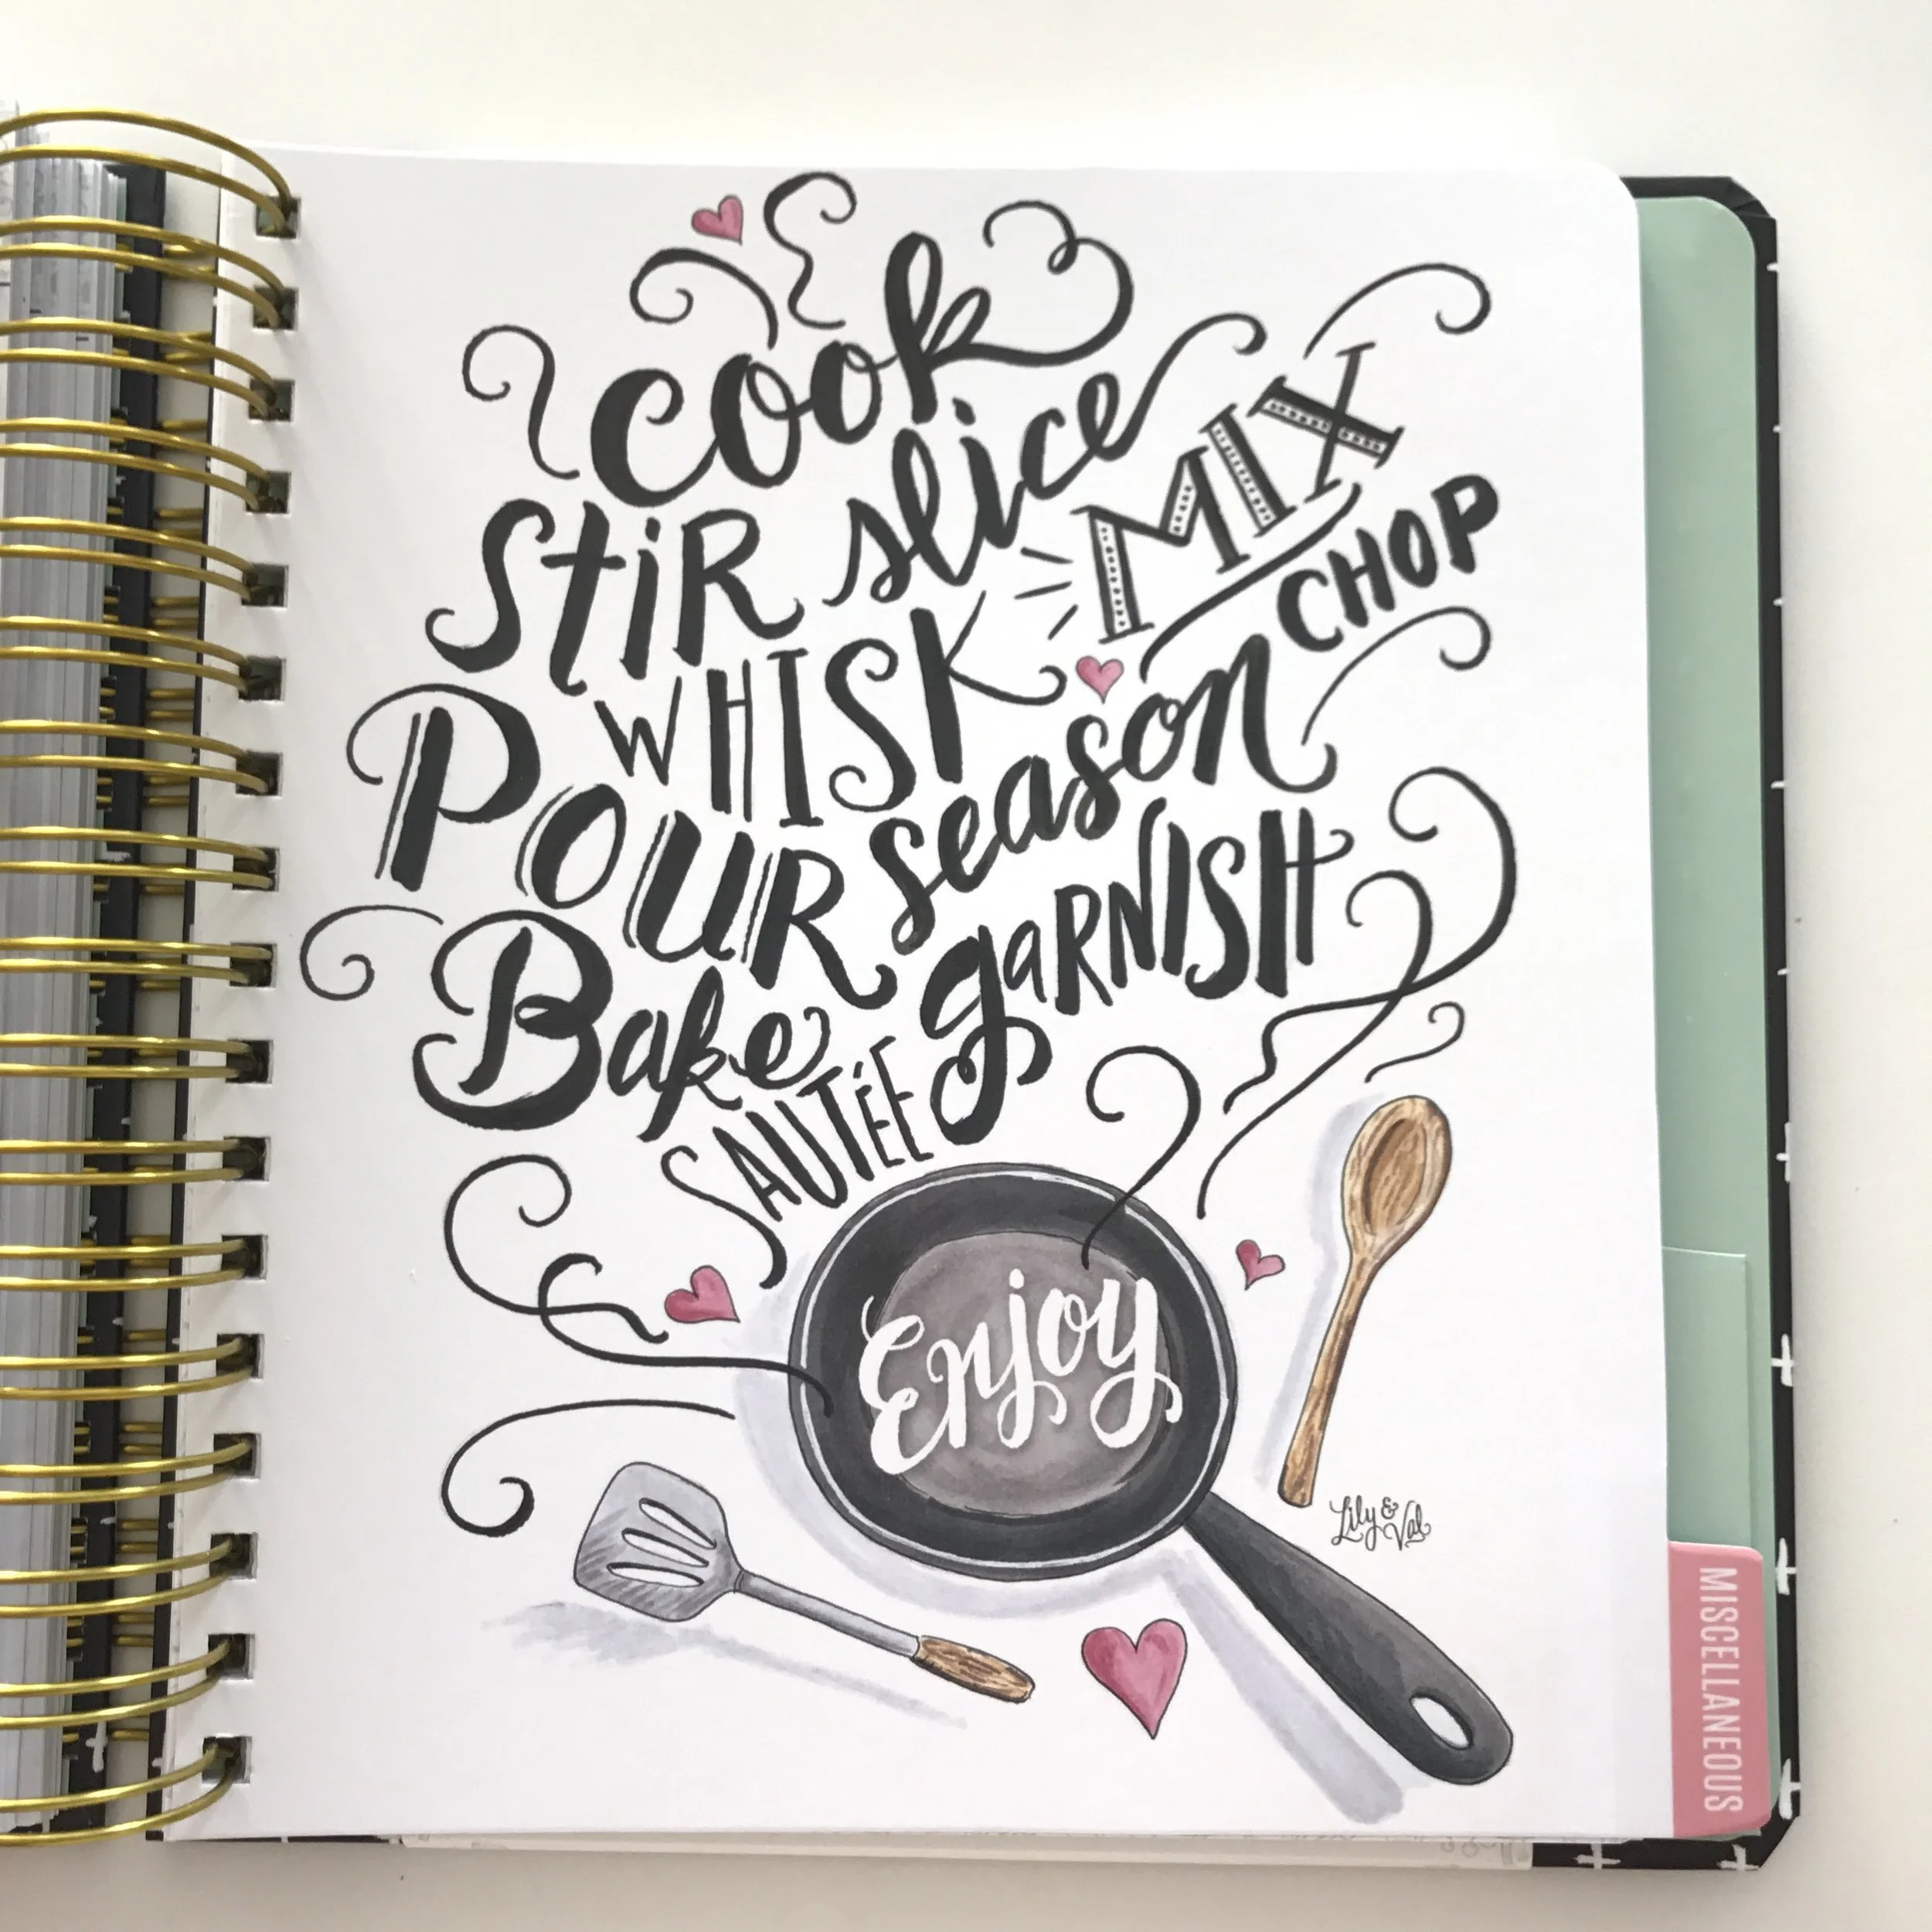 cook
stir slice MIX
WHISK CHOP
POUR season
Bake gARNISH
SAUTÉE
Enjoy
Lily & Val
MISCELLANEOUS